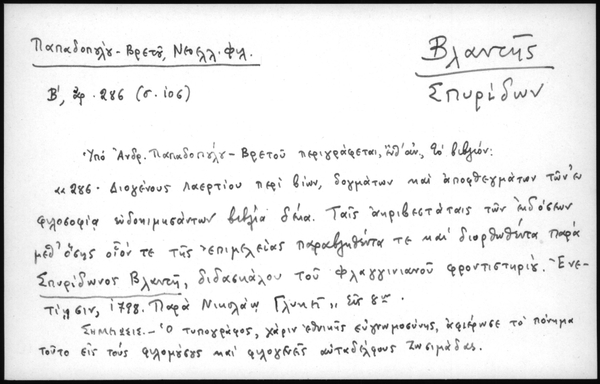 Παπαδοπούλου-Βρετοῦ, Νεοελλ. φιλ.
Βλαντῆς
Β', ἀρ. 286 (σ. 106)
Σπυρίδων
Ὑπὸ Ἀνδρ. Παπαδοπούλου-Βρετοῦ περιγράφεται, τὸ βιβλίον:
«286. Διογένους Λαερτίου περὶ βίων, δογμάτων καὶ ἀποφθεγμάτων τῶν ἐν
φιλοσοφίᾳ εὐδοκιμησάντων βιβλία δέκα. Ταῖς ἀκριβεστάταις τῶν ἐκδόσεων
μεθ' ὅσης οἷόν τε τῆς ἐπιμελείας παραβληθέντα τε καὶ διορθωθέντα παρὰ
Σπυρίδωνος Βλαντῆ, διδασκάλου τοῦ Φλαγγινιανοῦ φροντιστηρίου. Ἐνε-
τίῃσιν, 1798. Παρὰ Νικολάῳ Γλυκεῖ, εἰς 8ον.
Σημείωσις.- Ὁ τυπογράφος, χάριν ἐθνικῆς εὐγνωμοσύνης, ἀφιέρωσε τὸ πόνημα
τοῦτο εἰς τοὺς φιλομούσους καὶ φιλογενεῖς αὐταδέλφους Ζωσιμάδας.